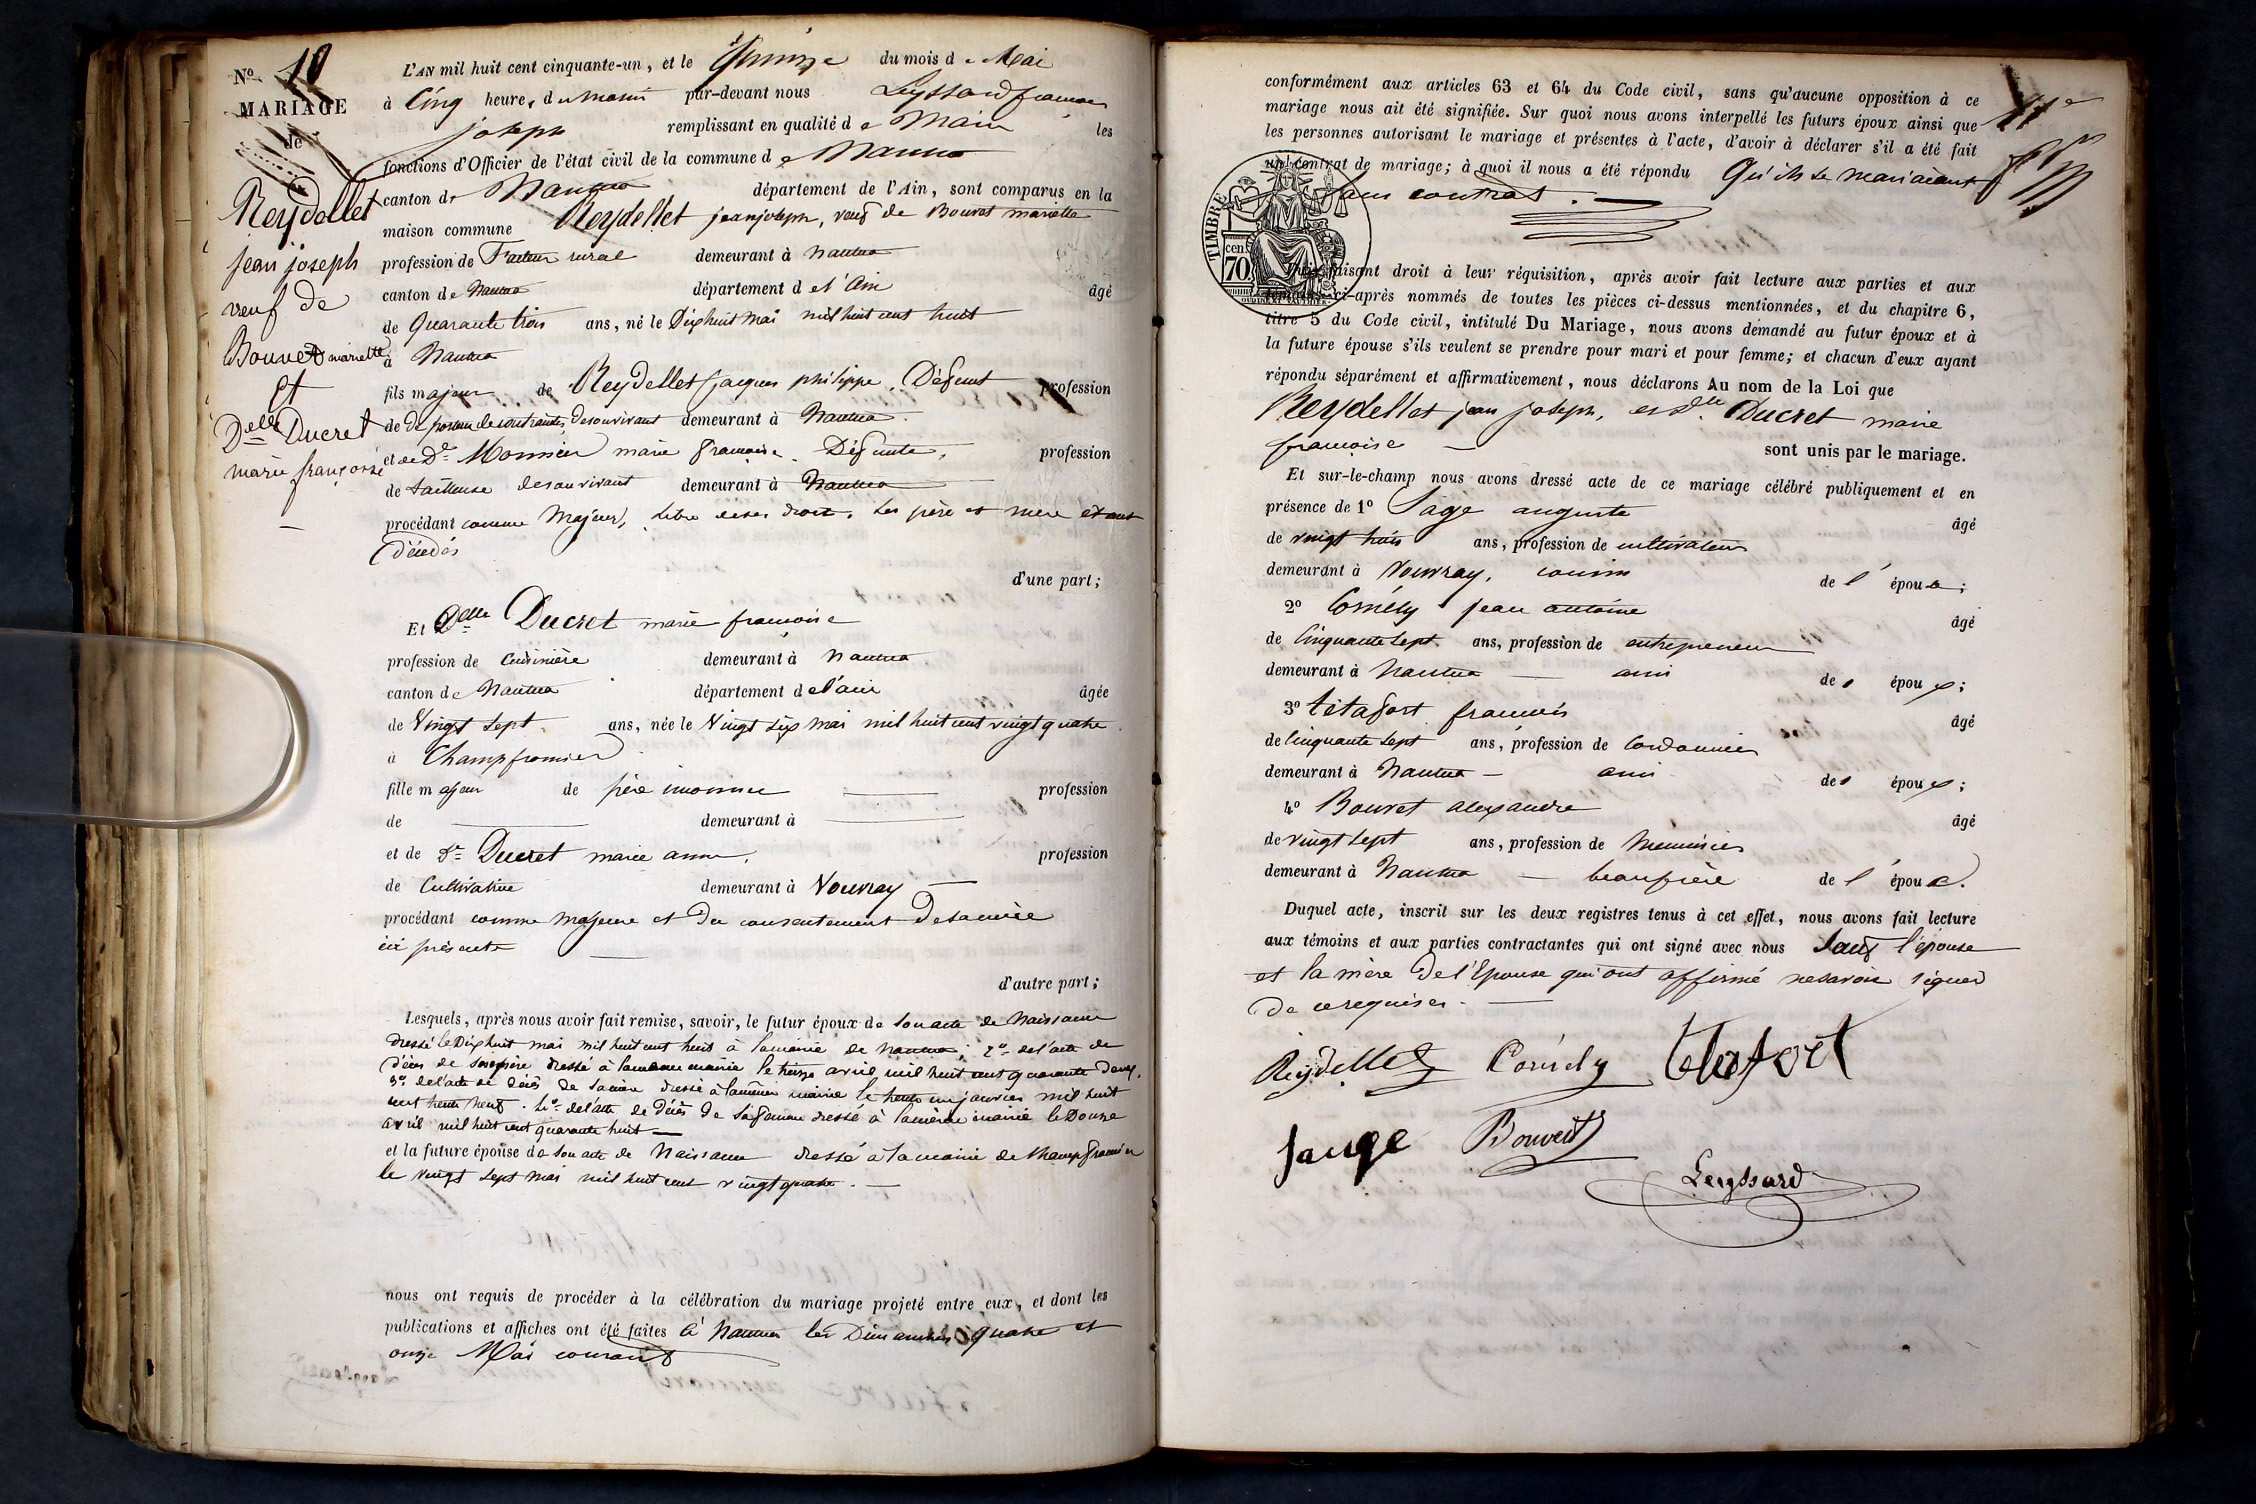 N.º 10
MARIAGE
de
Reydellet
jean joseph
veuf de
Bouvet mariette
et
Delle Ducret
marie françoise
L'AN mil huit cent cinquante-un, et le Quinze du mois de Mai
à Cinq heures du matin par-devant nous Leyssard françois
joseph remplissant en qualité de Maire les
fonctions d'Officier de l'état civil de la commune de Nantua
canton de Nantua département de l'Ain, sont comparus en la
maison commune Reydellet jean joseph, veuf de Bouvet mariette
profession de Facteur rural demeurant à Nantua
canton de Nantua département de l'Ain âgé
de Quarante trois ans, né le Dix huit Mai mil huit cent huit
à Nantua
fils majeur de Reydellet jacques philippe, Défunt profession
de de porteur de contraintes de son vivant demeurant à Nantua.
et de De Monnier marie françoise. Défunte, profession
de tailleuse de son vivant demeurant à Nantua
procédant comme Majeur, libre de ses droits. Ses père et mère étant
décédés
d'une part;
Et Delle Ducret marie françoise
profession de Cuisinière demeurant à Nantua
canton de Nantua département de l'ain âgée
de Vingt sept ans, née le Vingt six mai mil huit cent vingt quatre.
à Champfromier
fille majeur de père inconnu profession
de demeurant à
et de De Ducret marie anne, profession
de Cultivatrice demeurant à Vouvray
procédant comme Majeure et du consentement de sa mère
ici présente
d'autre part;
Lesquels, après nous avoir fait remise, savoir, le futur époux de son acte de Naissance
dressé le Dix huit mai mil huit cent huit à la mairie de Nantua; 2º de l'acte de
décès de son père dressé à la même mairie le treize avril mil huit cent quarante deux,
3º de l'acte de décès de sa mère dressé à la même mairie le trente un janvier mil huit
cent trente neuf. 4º de l'acte de décès de sa femme dressé à la même mairie le Douze
avril mil huit cent quarante huit
et la future épouse de son acte de Naissance dressé à la mairie de Champfromier
le vingt sept mai mil huit cent vingt quatre.
nous ont requis de procéder à la célébration du mariage projeté entre eux, et dont les
publications et affiches ont été faites à Nantua les Dimanches quatre et
onze Mai courant
conformément aux articles 63 et 64 du Code civil, sans qu'aucune opposition à ce
mariage nous ait été signifiée. Sur quoi nous avons interpellé les futurs époux ainsi que
les personnes autorisant le mariage et présentes à l'acte, d'avoir à déclarer s'il a été fait
un contrat de mariage; à quoi il nous a été répondu Qu'ils se mariaient
sans contrat.
11e
TIMBRE
70 cen
Puis faisant droit à leur réquisition, après avoir fait lecture aux parties et aux
témoins ci-après nommés de toutes les pièces ci-dessus mentionnées, et du chapitre 6,
titre 5 du Code civil, intitulé Du Mariage, nous avons demandé au futur époux et à
la future épouse s'ils veulent se prendre pour mari et pour femme; et chacun d'eux ayant
répondu séparément et affirmativement, nous déclarons Au nom de la Loi que
Reydellet jean joseph, et Delle Ducret marie
françoise
sont unis par le mariage.
Et sur-le-champ nous avons dressé acte de ce mariage célébré publiquement et en
présence de 1º Sage auguste âgé
de vingt trois ans, profession de cultivateur
demeurant à Vouvray, cousin de l' épouse;
2º Cornély jean antoine âgé
de Cinquante sept ans, profession de entrepreneur
demeurant à Nantua ami des époux;
3º tétafort françois âgé
de Cinquante sept ans, profession de Cordonnier
demeurant à Nantua ami des époux;
4º Bouvet alexandre âgé
de vingt sept ans, profession de Menuisier
demeurant à Nantua beau frère de l' époux.
Duquel acte, inscrit sur les deux registres tenus à cet effet, nous avons fait lecture
aux témoins et aux parties contractantes qui ont signé avec nous Sauf l'épouse
et la mère de l'Epouse qui ont affirmé ne savoir signer
de ce requises.
Reydellet Cornély Tetafort
Sauge Bouvet
Leyssard